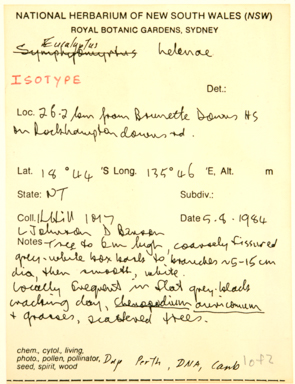 NATIONAL HERBARIUM OF NEW SOUTH WALES (NSW)
ROYAL BOTANIC GARDENS, SYDNEY
Eucalyptus
Symphyomyrtus helenae
ISOTYPE
Det.:
Loc. 26.2 km from Brunette Downs HS
on Rockhampton downs rd.
Lat. 18° 44 'S Long. 135° 46 'E, Alt. m
State: NT Subdiv.:
Coll. Hill 1017 Date 5.8.1984
L Johnson D Benson
Notes Tree to 6m high, coarsely fissured
grey-white box bark to branches ~5-15 cm
dia, then smooth, white.
Locally frequent in flat grey-black
cracking clay, Chenopodium auricomum
+ grasses, scattered trees.
chem., cytol., living,
photo., pollen, pollinator,
seed, spirit, wood
Dup Perth, DNA, Canb 1 of 2